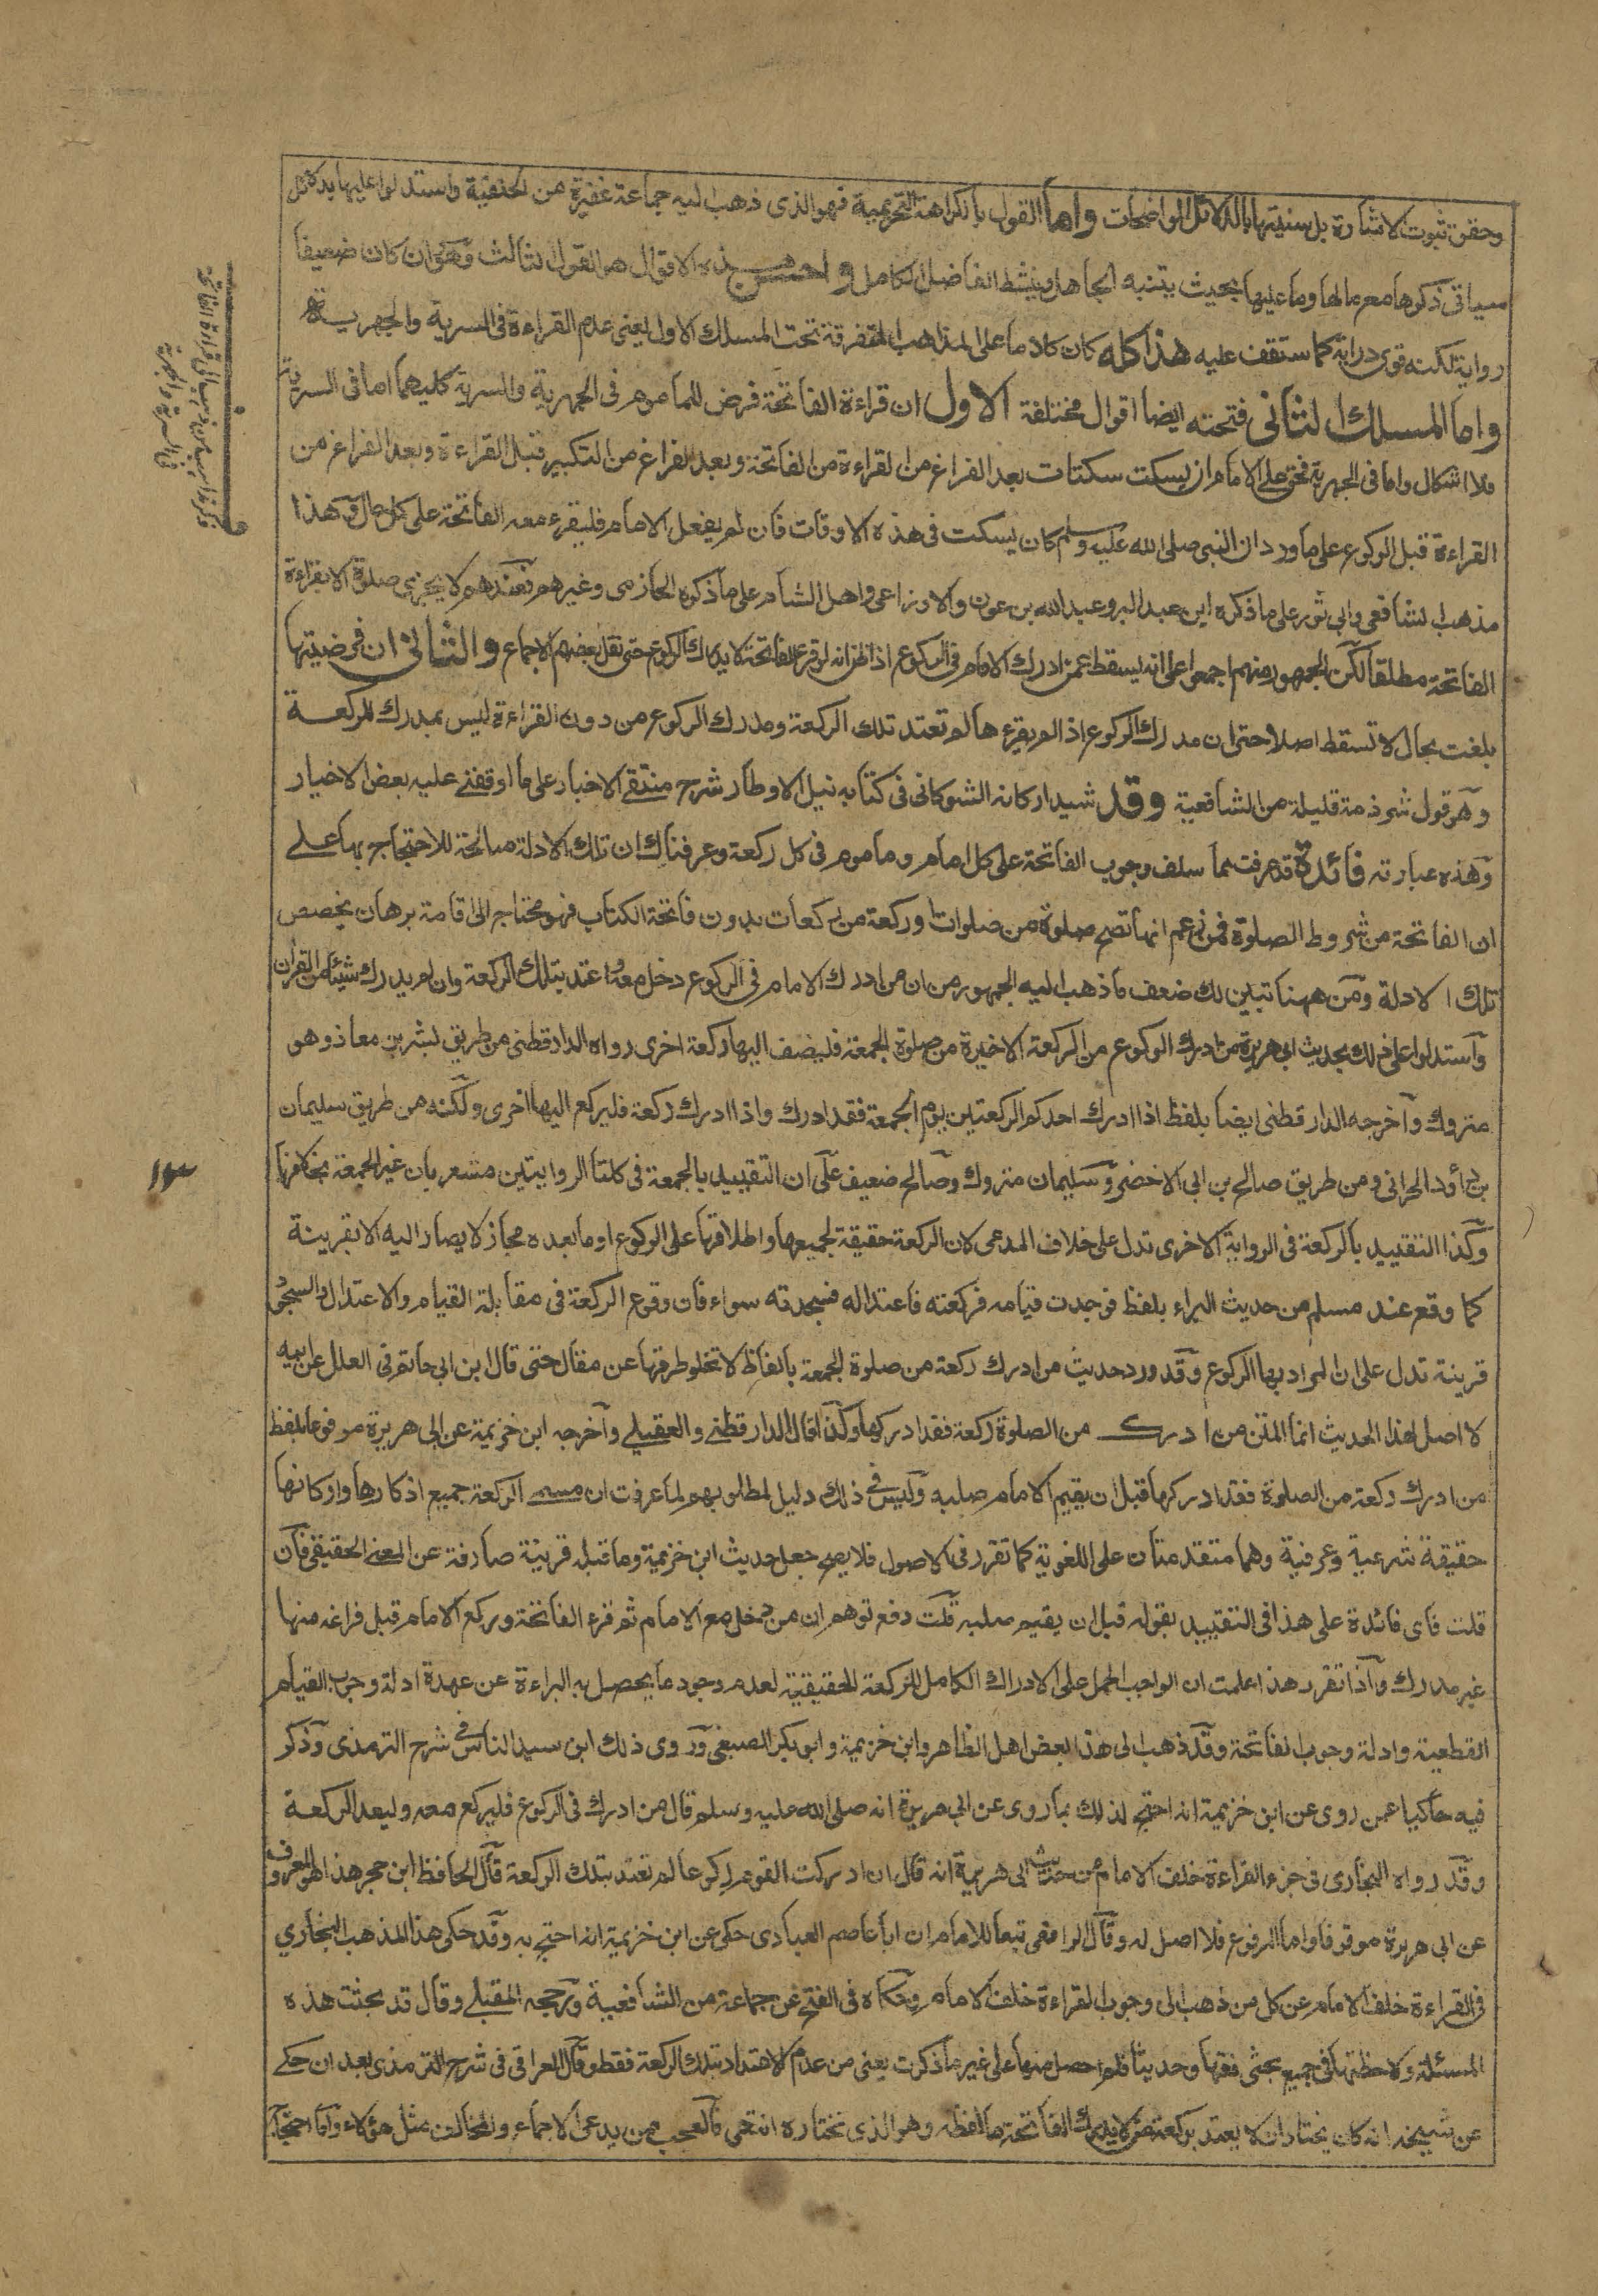 وحقق ثبوت الاشارة بل سنيتها بالدلائل الواضحات واما القول بالكراهة التحريمية فهو الذى ذهب اليه جماعة غفيرة من الحنفية واستدلوا عليها بدلائل
سياتى ذكرها مع مالها وما عليها بحيث يتنبه الجاهل وينشط الفاضل الكامل واحسن هذه الاقوال هو القول الثالث وهو وان كان ضعيفا
رواية لكنه قوى دراية كما ستقف عليه هذا كله كان كلاما على المذاهب المتفرقة تحت المسلك الاول يعنى عدم القراءة فى السرية والجهرية
واما المسلك الثانى فتحته ايضا اقوال مختلفة الاول ان قراءة الفاتحة فرض للماموم فى الجهرية والسرية كليهما اما فى السرية
فلا اشكال واما فى الجهرية فحق على الامام ان يسكت سكتات بعد الفراغ من القراءة من الفاتحة وبعد الفراغ من التكبير قبل القراءة وبعد الفراغ من
القراءة قبل الركوع على ما ورد ان النبى صلى الله عليه وسلم كان يسكت فى هذه الاوقات فان لم يفعل الامام فليقرء معه الفاتحة على كل حال وهذا
مذهب الشافعى وابى ثور على ما ذكره ابن عبد البر وعبد الله بن عون والاوزاعى واهل الشام على ما ذكره الحازمى وغيرهم فعندهم لا يجزى صلوة الا بقراءة
الفاتحة مطلقا لكن الجمهور منهم اجمعوا على انه يسقط عمن ادرك الامام فى الركوع اذ اظن انه لو قرء الفاتحة لا يدرك الركوع حتى نقل بعضهم الاجماع والثانى ان فرضيتها
بلغت بحال لا تسقط اصلا حتى ان مدرك الركوع اذ الم يقرء ها لم تعتد تلك الركعة ومدرك الركوع من دون القراءة ليس بمدرك للركعة
وهو قول شرذمة قليلة من الشافعية وقد شيد اركانه الشوكانى فى كتابه نيل الاوطار شرح منتقى الاخبار على ما اوقفنى عليه بعض الاخيار
وهذه عبارته فائدة قد عرفت مما سلف وجوب الفاتحة على كل امام وماموم فى كل ركعة وعرفناك ان تلك الادلة صالحة للاحتجاج بها على
ان الفاتحة من شروط الصلوة فمن زعم انها تصح صلوة من صلوات او ركعة من ركعات بدون فاتحة الكتاب فهو محتاج الى اقامة برهان يخصص
تلك الادلة ومن ههنا تبين لك ضعف ما ذهب اليه الجمهور من ان من ادرك الامام فى الركوع دخل معه واعتد بتلك الركعة وان لم يدرك شيئا من القران
واستدلوا على ذلك بحديث ابى هريرة من ادرك الركوع من الركعة الاخيرة من صلوة الجمعة فليضف اليها ركعة اخرى رواه الدارقطنى من طريق بشر بن معاذ وهو
متروك وآخرجه الدارقطنى ايضا بلفظ اذا ادرك احدكم الركعتين يوم الجمعة فقد ادرك واذا ادرك ركعة فليركع اليها اخرى ولكنه من طريق سليمان
بن داؤد الحرانى ومن طريق صالح بن ابى الاخضر وسليمان متروك وصالح ضعيف على ان التقييد بالجمعة فى كلتا الروايتين مشعر بان غير الجمعة بخلافها
وكذا التقييد بالركعة فى الرواية الاخرى تدل على خلاف المدعى لان الركعة حقيقة لجميعها واطلاقها على الركوع او ما بعده مجاز لا يصار اليه الا بقرينة
كما وقع عند مسلم من حديث البراء بلفظ فوجدت قيامه فركعته فاعتداله فسجدته سواء فان وقوع الركعة فى مقابلة القيام والاعتدال والسجود
قرينة تدل على ان المراد بها الركوع وقد ورد حديث من ادرك ركعة من صلوة الجمعة بالفاظ لا تخلو طرقها عن مقال حتى قال ابن ابى حاتم فى العلل عن ابيه
لا اصل لهذا الحديث انما المتن من ادرك من الصلوة ركعة فقد ادركها وكذا قال الدارقطنى والعقيلى وآخرجه ابن خزيمة عن ابى هريرة مرفوعا بلفظ
من ادرك ركعة من الصلوة فقد ادركها قبل ان يقيم الامام صلبه وليس فى ذلك دليل لمطلوبهم لما عرفت ان مسمى الركعة جميع اذكارها واركانها
حقيقة شرعية وعرفية وهما متقدمتان على اللغوية كما تقرر فى الاصول فلا يصح جعل حديث ابن خزيمة وما قبله قرينة صارفة عن المعنى الحقيقى فان
قلت فاى فائدة على هذا فى التقييد بقوله قبل ان يقيم صلبه قلت دفع توهم ان من دخل مع الامام ثم قرء الفاتحة وركع الامام قبل فراغه منها
غير مدرك وآذا تقرر هذا علمت ان الواجب الحمل على الادراك الكامل للركعة الحقيقية لعدم وجود ما يحصل به البراءة عن عهدة ادلة وجوب القيام
القطعية وادلة وجوب الفاتحة وقد ذهب الى هذا بعض اهل الظاهر وابن خزيمة وابو بكر الصبغى وروى ذلك ابن سيد الناس فى شرح الترمذى وذكر
فيه حاكيا عمن روى عن ابن خزيمة انه احتج لذلك بما روى عن ابى هريرة انه صلى الله عليه وسلم قال من ادرك فى الركوع فليركع معه وليعد الركعة
وقد رواه البخارى فى جزء القراءة خلف الامام من حديث ابى هريرة انه قال ان ادركت القوم ركوعا لم تعتد بتلك الركعة قال الحافظ ابن حجر هذا هو المعروف
عن ابى هريرة موقوفا واما المرفوع فلا اصل له وقال الرافعى تبعا للامام ان ابا عاصم العبادى حكى عن ابن خزيمة انه احتج به وقد حكى هذا المذهب البخاري
فى القراءة خلف الامام عن كل من ذهب الى وجوب القراءة خلف الامام وحكاه فى الفتح عن جماعة من الشافعية ورجحه المقبلى وقال قد بحثت هذه
المسئلة ولاحظتها فى جميع بحثى فقها وحديثا فلم احصل منها على غير ما ذكرت يعنى من عدم الاعتداد بتلك الركعة فقط وقال العراقى فى شرح الترمذى بعد ان حكى
عن شيخه انه كان يختار ان لا يعتد بركعة من لا يدرك الفاتحة ما لفظه وهو الذى نختاره انتهى فالعجب ممن يدعى الاجماع والمخالف مثل هؤلاء واما احتجاج